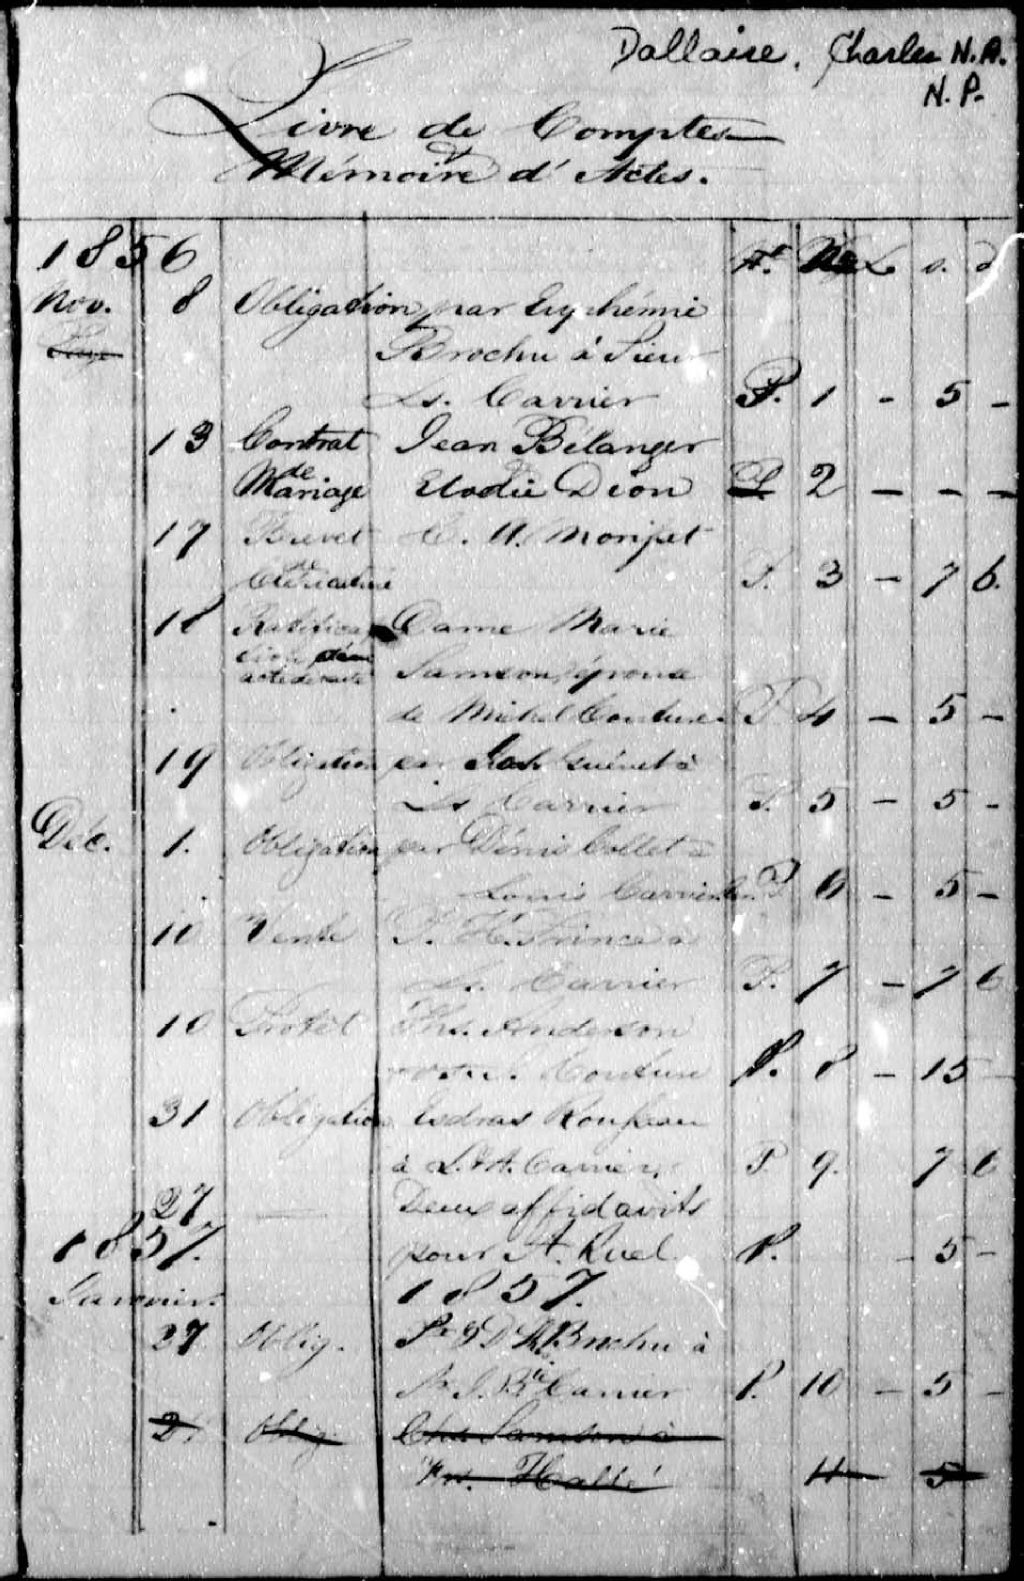 Dallaire, Charles N.A.
N.P.
Livre de Comptes
&
Mémoire d'Actes.
1856 No. £ s. d
Nov. 8 Obligation par Euphémie
Brochu à Sieur
Ls. Carrier P. 1 - 5 -
13 Contrat Jean Bélanger
de &
Mariage Elodie Dion P 2 - - -
17 Brevet
de
Cléricature P. 3 - 7 6.
18 Ratifica Dame Marie
Samson, épouse
acte de vente
de Michel Couture P. 4 - 5 -
19 Obligation par Guénet à
Ls Carrier P. 5 - 5 -
Déc. 1. Obligation par Dénis Collet à
Louis Carrier P 6 - 5 -
10 Vente J. H. Prince à
Ls. Carrier P. 7 - 7 6
10 Protêt Ths. Anderson
Couture P. 8 - 15 -
31 Obligation Esdras
à L. & A. Carrier P 9. 7 6
27 Deux affidavits
1857. pour A. Ruel P. - 5 -
Janvier. 1857.
27 Oblig. Brochu à
J. Bte Carrier P. 10 - 5 -
Oblig. Chs Samson à
Hallé 11 5